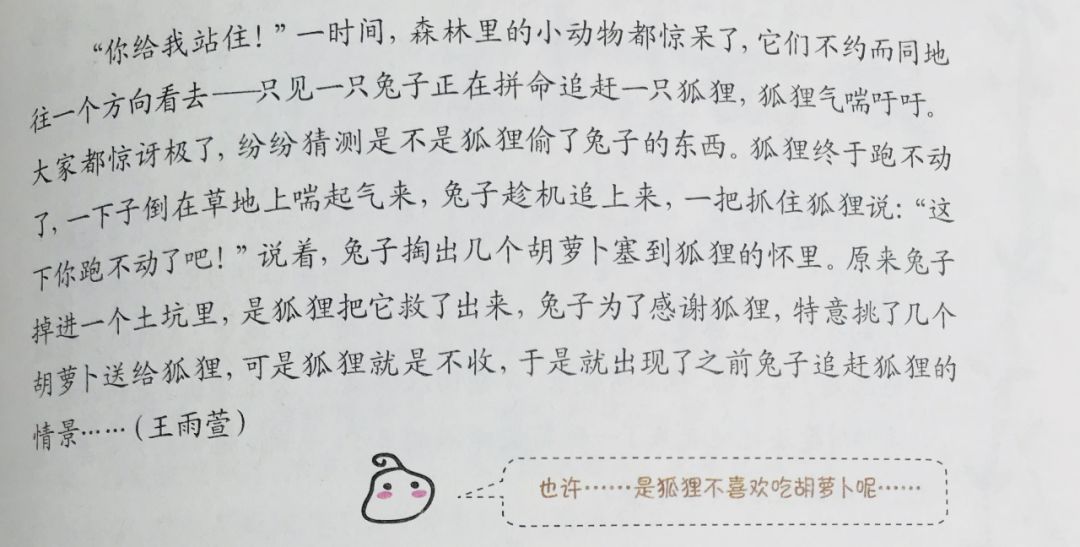 “你给我站住！”一时间，森林里的小动物都惊呆了，它们不约而同地
往一个方向看去——只见一只兔子正在拼命追赶一只狐狸，狐狸气喘吁吁。
大家都惊讶极了，纷纷猜测是不是狐狸偷了兔子的东西。狐狸终于跑不动
了，一下子倒在草地上喘起气来，兔子趁机追上来，一把抓住狐狸说：“这
下你跑不动了吧！”说着，兔子掏出几个胡萝卜塞到狐狸的怀里。原来兔子
掉进一个土坑里，是狐狸把它救了出来，兔子为了感谢狐狸，特意挑了几个
胡萝卜送给狐狸，可是狐狸就是不收，于是就出现了之前兔子追赶狐狸的
情景……（王雨萱）
也许……是狐狸不喜欢吃胡萝卜呢……